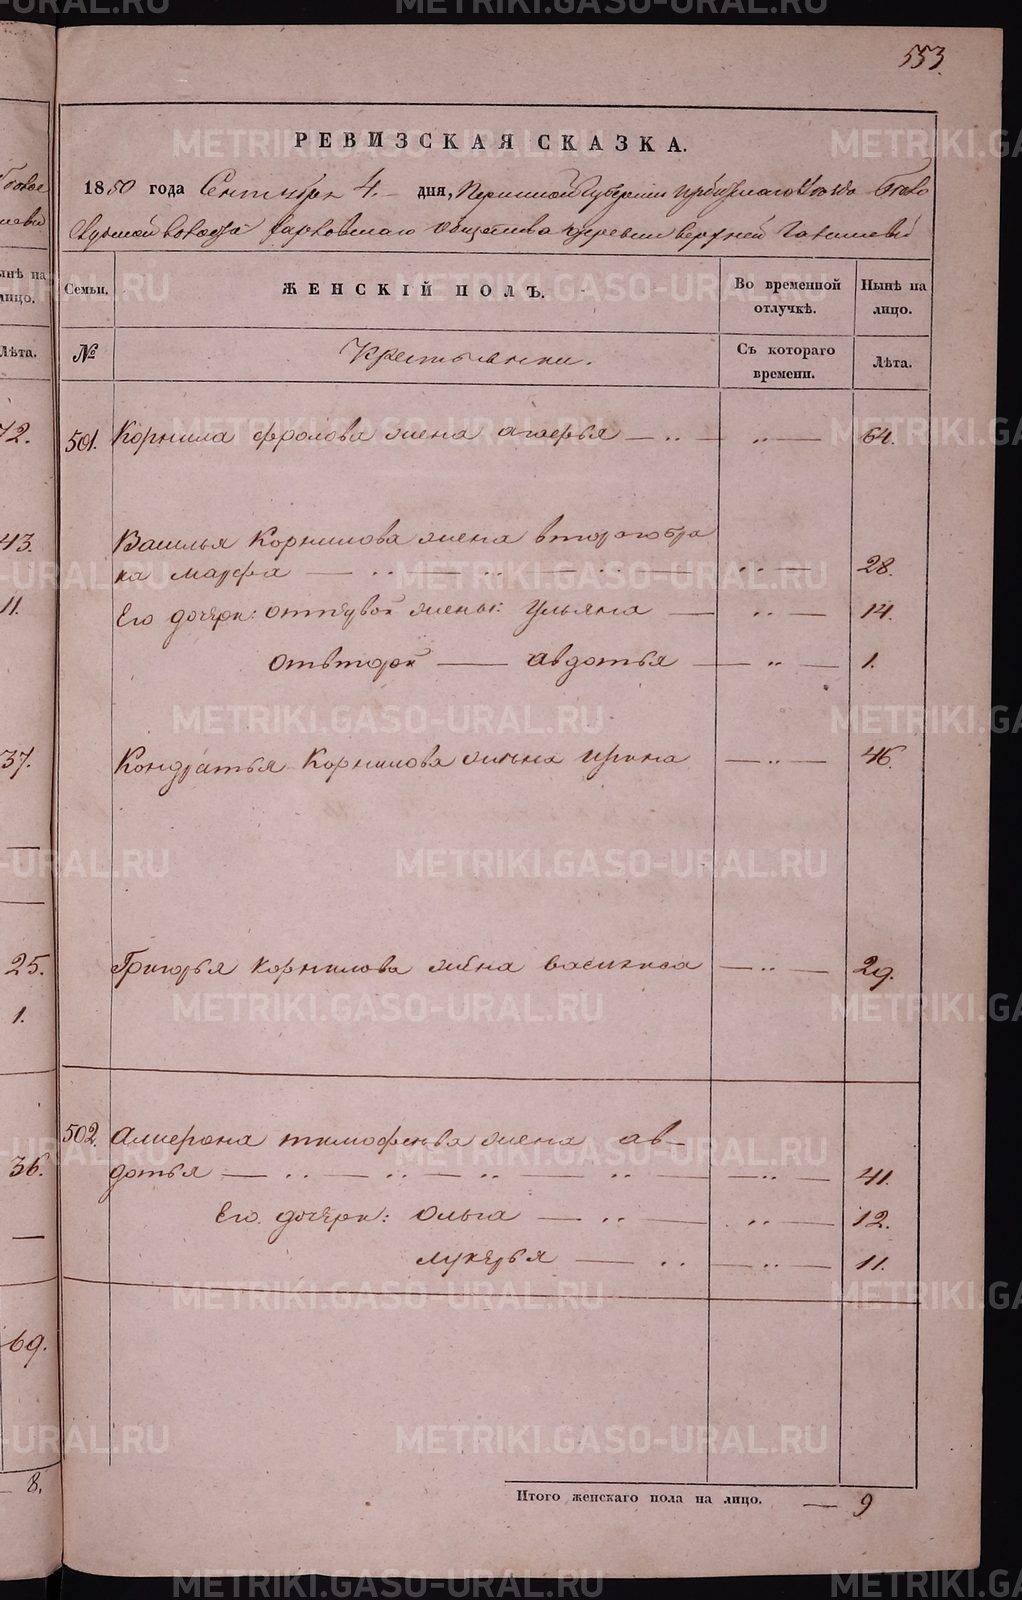 553.
РЕВИЗСКАЯ СКАЗКА.
1850 года Сентября 4 дня, Пермской Губерніи Ирбитскаго Уезда
волости Харловскаго общества деревни Верхней
Семьи. ЖЕНСКІЙ ПОЛЪ. Во временной отлучкѣ. Нынѣ на лицо.
№ Крестьянки. Съ котораго времени. Лѣта.
501. Корнила Фролова жена — „ — „ — 64.
Василья Корнилова жена второго бра
ка Марфа — „ — „ — „ — „ — 28.
Его дочери: от первой жены: Ульяна — „ — 14.
от второй — Авдотья — „ — 1.
Кондратья Корнилова жена Ирина — „ — 46.
Григорья Корнилова жена Василиса — „ — 29.
502. Тимофеева жена Ав-
дотья — „ — „ — „ — „ — „ — 41.
Его дочери: Ольга — „ — „ — 12.
Лукерья — „ — „ — 11.
Итого женскаго пола на лицо. — 9
нынѣ на
лицо.
Лѣта.
72.
43.
11.
37.
25.
1.
36.
69.
8.
METRIKI.GASO-URAL.RU